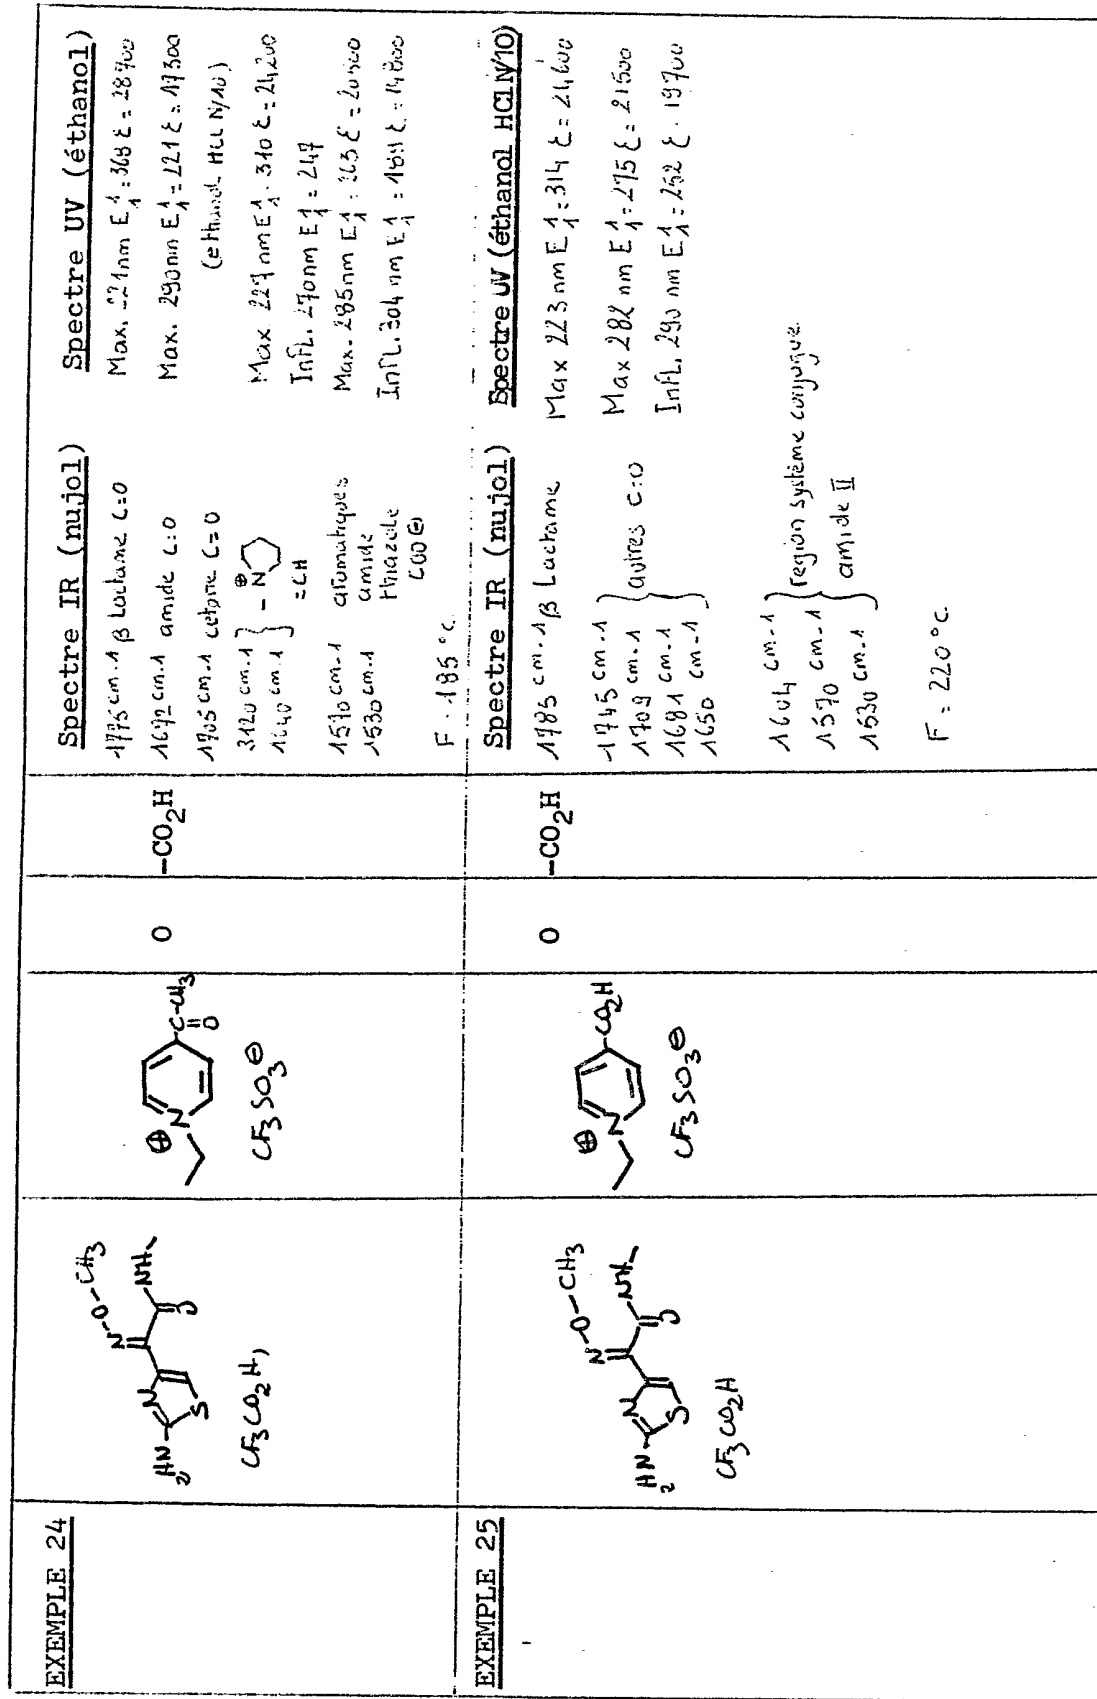 EXEMPLE 24
H2N
N
S
N-O-CH3
NH
O
CF3CO2H,
⊕
N
C-CH3
O
CF3SO3⊖
O
-CO2H
Spectre IR (nujol)
1775 cm-1 β Lactame C=O
1692 cm-1 amide C=O
1705 cm-1 cétone C=O
3120 cm-1
1640 cm-1
} -N⊕
=CH
1570 cm-1 aromatiques
1530 cm-1 amide
thiazole
COO⊖
F = 185 °C
Spectre UV (éthanol)
Max. 221nm E 1 1 = 368 ε = 28700
Max. 290nm E 1 1 = 221 ε = 17300
(ethanol HCL N/10)
Max 227 nm E 1 1 = 310 ε = 24200
Infl. 270nm E 1 1 = 247
Max. 285nm E 1 1 = 263 ε = 20500
Infl. 304 nm E 1 1 = 189 ε = 14800
EXEMPLE 25
H2N
N
S
N-O-CH3
NH
O
CF3CO2H
⊕
N
CO2H
CF3SO3⊖
O
-CO2H
Spectre IR (nujol)
1785 cm-1 β Lactame
1745 cm-1
1709 cm-1
1681 cm-1
1650 cm-1
} autres C=O
1604 cm-1
1570 cm-1
1530 cm-1
} region système conjugue
amide II
F = 220°C
Spectre UV (éthanol HCl N/10)
Max 223 nm E 1 1 = 314 ε = 24600
Max 282 nm E 1 1 = 275 ε = 21500
Infl. 290 nm E 1 1 = 252 ε = 19700